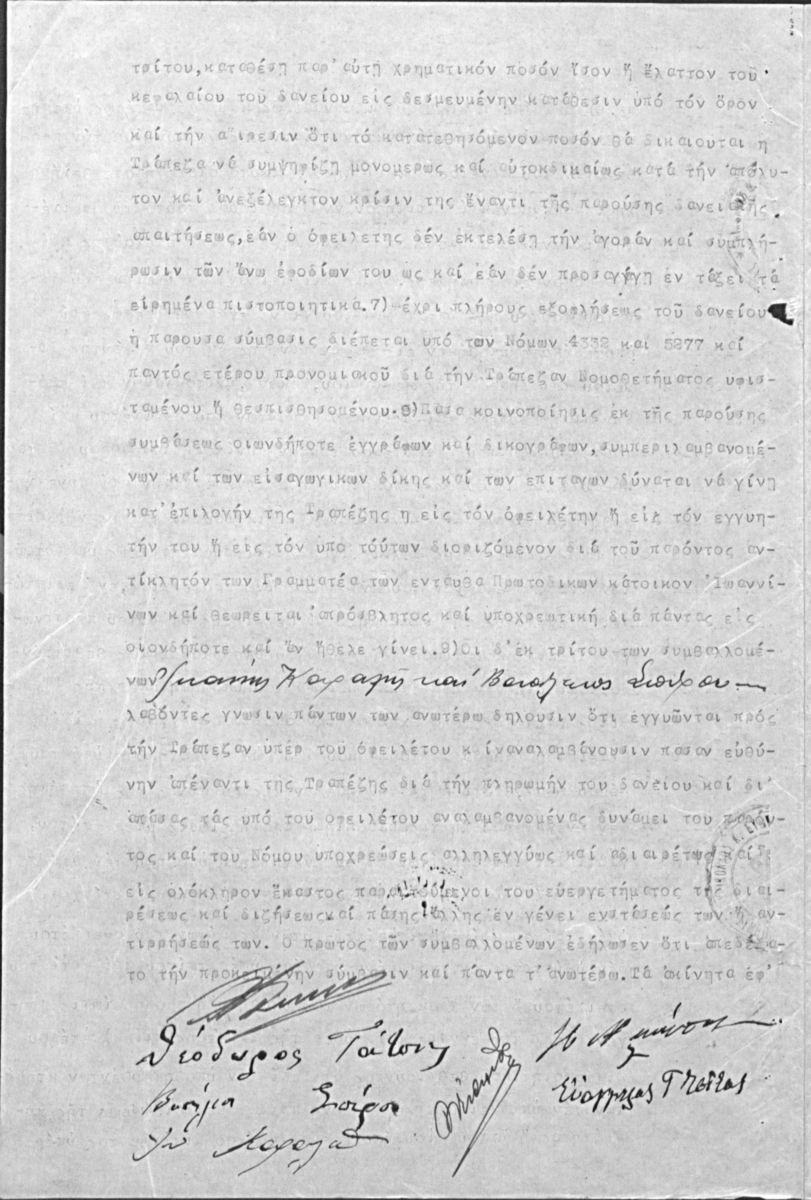 τρίτου,καταθέσῃ παρ'αὐτῇ χρηματικόν ποσόν ἴσον ἤ ἔλαττον τοῦ
κεφαλαίου τοῦ δανείου εἰς δεσμευμένην κατάθεσιν ὑπό τόν ὅρον
καί τήν αἵρεσιν ὅτι τό κατατεθησόμενον ποσόν θά δικαιοῦται η
Τράπεζα νά συμψηφίζῃ μονομερῶς καί αὐτοκδικαίως κατά τήν ἀπόλυ-
τον καί ἀνεξέλεγκτον κρίσιν της ἔναντι τῆς παρούσης δανειακῆς
απαιτήσεως,εάν ὁ ὀφειλέτης δέν ἐκτελέσῃ τήν ἀγοράν καί συμπλή-
ρωσιν τῶν ἄνω ἐφοδίων του ως καί εάν δέν προσαγάγῃ ἐν τάξει τά
εἰρημένα πιστοποιητικά.7)-έχρι πλήρους εξοφλήσεως τοῦ δανείου
ἡ παροῦσα σύμβασις διέπεται υπό των Νόμων 4332 καί 5277 καί
παντός ετέρου προνομιακοῦ διά τήν Τράπεζαν Νομοθετήματος υφισ-
ταμένου ἤ θεσπισθησομένου.8)Πᾶσα κοινοποίησις ἐκ τῆς παρούσης
συμβάσεως οιωνδήποτε ἐγγράφων καί δικογράφων,συμπεριλαμβανομέ-
νων καί των εἰσαγωγικων δίκης καί των επιταγων δύναται νά γίνῃ
κατ'ἐπιλογήν της Τραπέζης η εἰς τόν ὀφειλέτην ἤ εἰς τόν εγγυη-
τήν του ἤ εις τόν υπο τούτων διοριζόμενον διά τοῦ παρόντος αν-
τίκλητόν των Γραμματέα των ενταυθα Πρωτοδικων κάτοικον Ἰωαννί-
νων καί θεωρειται ἀπρόσβλητος καί υποχρεωτική διά πάντας εἰς
οιονδήποτε καί ἄν ἤθελε γίνει.9)Οι δ'έκ τρίτου των συμβαλλομέ-
νων Σπύρου
λαβόντες γνωσιν πάντων των ανωτέρω δηλουσιν ὅτι ἐγγυῶνται πρός
τήν Τράπεζαν υπέρ του ὀφειλέτου καίναναλαμβάνουσιν πασαν ευθύ-
νην ἀπέναντι της Τραπέζης διά τήν πληρωμήν του δανείου καί δι'
ἀπάσας τάς υπό του οφειλέτου αναλαμβανομένας δυνάμει του παρόν-
τος καί του Νόμου υποχρεώσεις αλληλεγγύως καί αδιαιρέτως καί
εἰς ολόκληρον ἕκαστος παραιτούμενοι του εὐεργετήματος της διαι-
ρέσεως καί διζήσεωςκαί πάσης ἄλλης ἐν γένει ενστάσεώς των ἤ αν-
τιρρήσεώς των. Ο πρωτος τῶν συμβαλλομένων εδήλωσεν ὅτι απεδέξα-
το τήν προκειμένην σύμβασιν καί πάντα τ'ανωτέρω.Τά ἀκίνητα ἐφ'
Θεόδωρος Τάτσης
Σπύρου
Εὐάγγελος